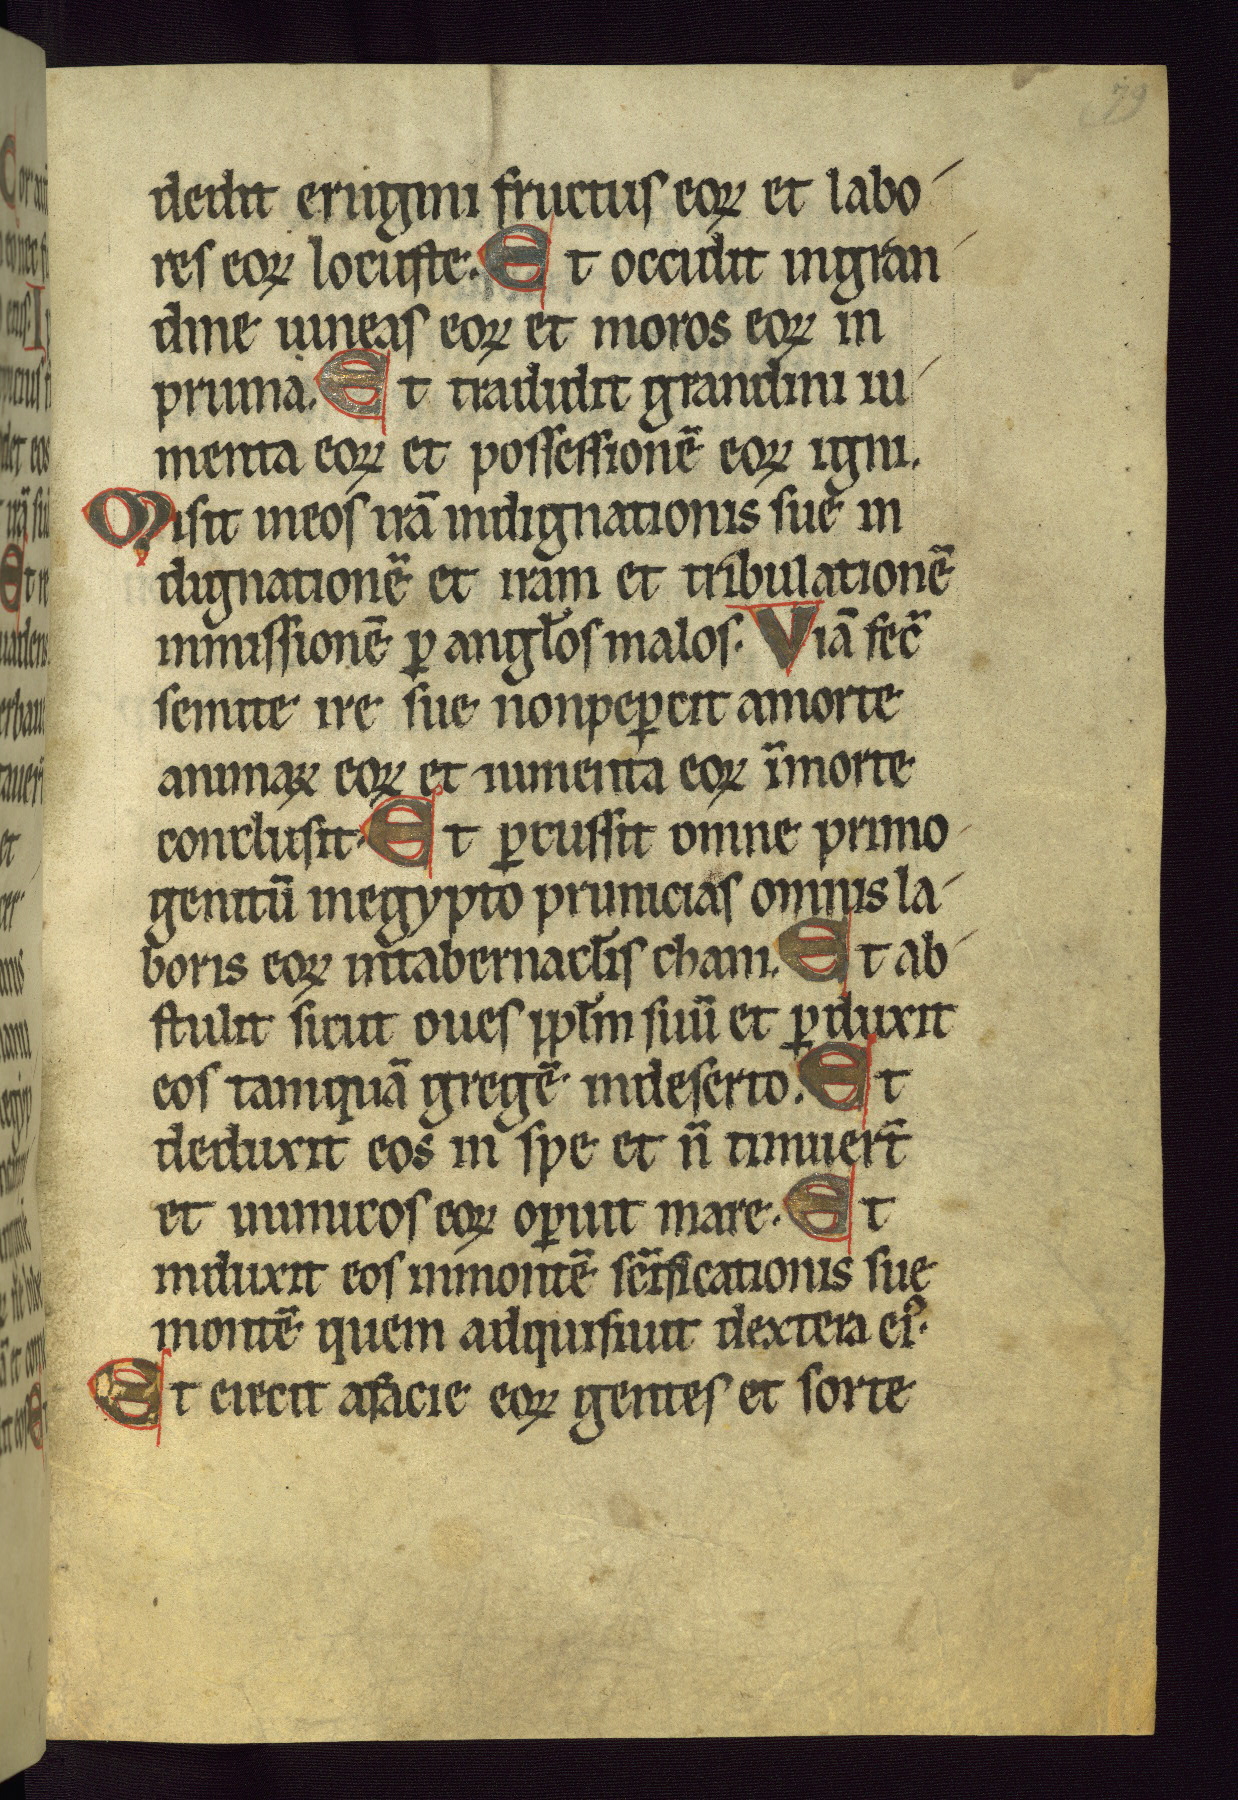 79
dedit erugini fructus eoꝝ et labo-
res eoꝝ locuste. Et occidit ingran-
dine uineas eoꝝ et moros eoꝝ in
pruina. Et tradidit grandini iu-
menta eoꝝ et possessionē eoꝝ igni.
Misit ineos irā indignationis sue in
dignationē et iram et tribulationē
inmissionē ꝑ angłos malos. Viā fec̄
semite ire sue nonpeꝑcit amorte
animaꝝ eoꝝ et iumenta eoꝝ īmorte
conclusit. Et ꝑcussit omne primo-
genitū inegypto primicias omnis la-
boris eoꝝ intabernacłis cham. Et ab-
stulit sicut oues ppłm suū et ꝑduxit
eos tamquā gregē indeserto. Et
deduxit eos in spe et n̄ timuer̄t
et inimicos eoꝝ oꝑuit mare. Et
induxit eos inmontē sc̄ificationis sue
montē quem adquisiuit dextera eiꝰ.
Et eiecit afacie eoꝝ gentes et sorte